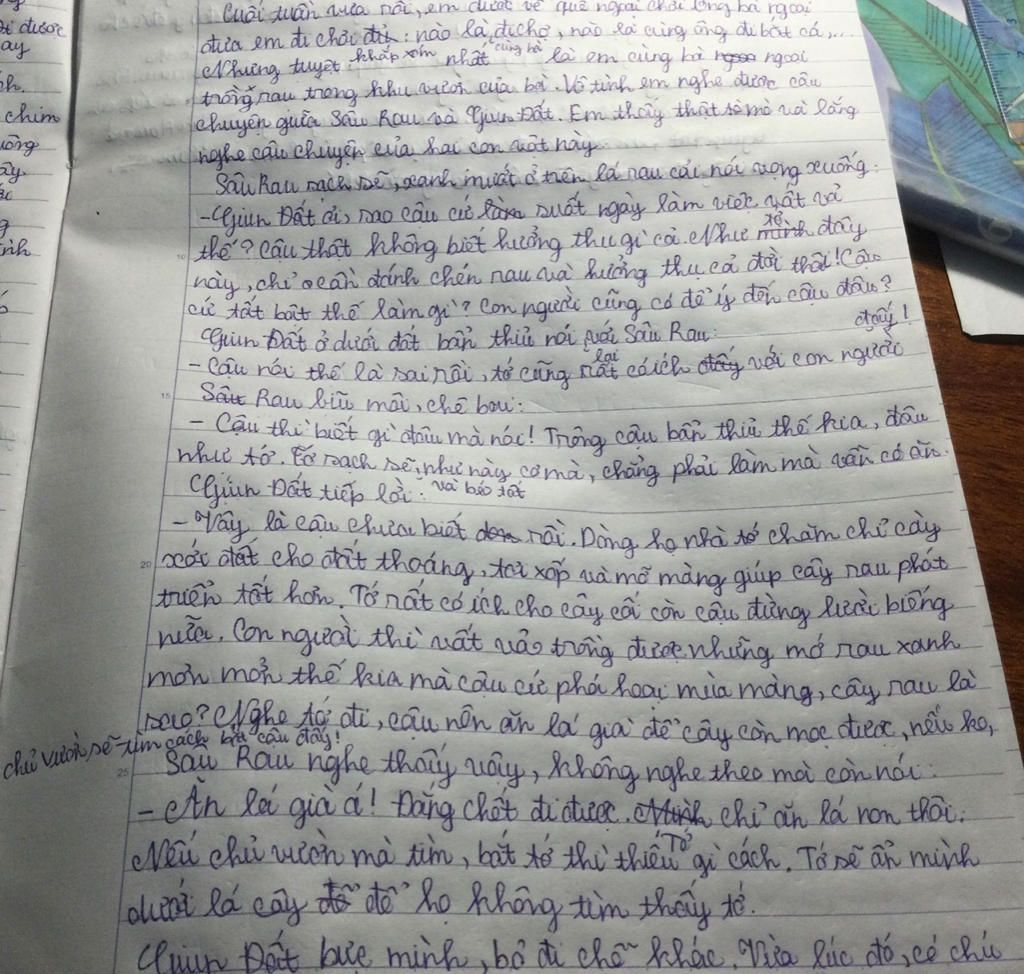 Cuối tuần vừa rồi, em được về quê ngoại chơi. Ông bà ngoại
đưa em đi chơi đủ: nào là đi chợ, nào là cùng ông đi bắt cá,...
Nhưng tuyệt khắp xóm nhất cùng bà là em cùng bà ngoại
trồng rau trong khu vườn của bà. Vô tình em nghe được câu
chuyện giữa Sâu Rau và Giun Đất. Em thấy thật tò mò và lắng
nghe câu chuyện của hai con vật này.
Sâu Rau sạch sẽ, xanh mướt ở trên lá rau cải nói vọng xuống:
- Giun Đất ơi, sao cậu cứ làm suốt ngày làm việc vất vả
thế? Cậu thật không biết hưởng thụ gì cả. Như mình tớ đây
này, chỉ cần đánh chén rau và hưởng thụ cả đời thôi! Cậu
cứ tất bật thế làm gì? Con người cũng có để ý đến cậu đâu?
Giun Đất ở dưới đất bẩn thỉu nói với Sâu Rau:
- Cậu nói thế là sai rồi, tớ cũng rất lại có ích đấy với con người đấy!
Sâu Rau bĩu môi, chê bai:
- Cậu thì biết gì đâu mà nói! Trông cậu bẩn thỉu thế kia, đâu
như tớ. Tớ sạch sẽ, như này cơ mà, chẳng phải làm mà vẫn có ăn.
Giun Đất tiếp lời: và bảo tốt
- Vậy là cậu chưa biết rồi. Dòng họ nhà tớ chăm chỉ cày
xới đất cho đất thoáng, tơi xốp và mỡ màng giúp cây rau phát
triển tốt hơn. Tớ rất có ích cho cây cối còn cậu đừng lười biếng
nữa. Con người thì vất vả trồng được những mớ rau xanh
mơn mởn thế kia mà cậu cứ phá hoại mùa màng, cây rau là
sao? Nghe tớ đi, cậu nên ăn lá già để cây còn mọc được, nếu ko,
chủ vườn sẽ tìm cách bắt cậu đấy!
Sâu Rau nghe thấy vậy, không nghe theo mà còn nói:
- Ăn lá già á! Đắng chết đi được. Mình Tớ chỉ ăn lá non thôi.
Nếu chủ vườn mà tìm, bắt tớ thì thiếu gì cách. Tớ sẽ ẩn mình
dưới lá cây để để họ không tìm thấy tớ.
Giun Đất bực mình, bỏ đi chỗ khác. Vừa lúc đó, có chú
được
ay
h.
chim